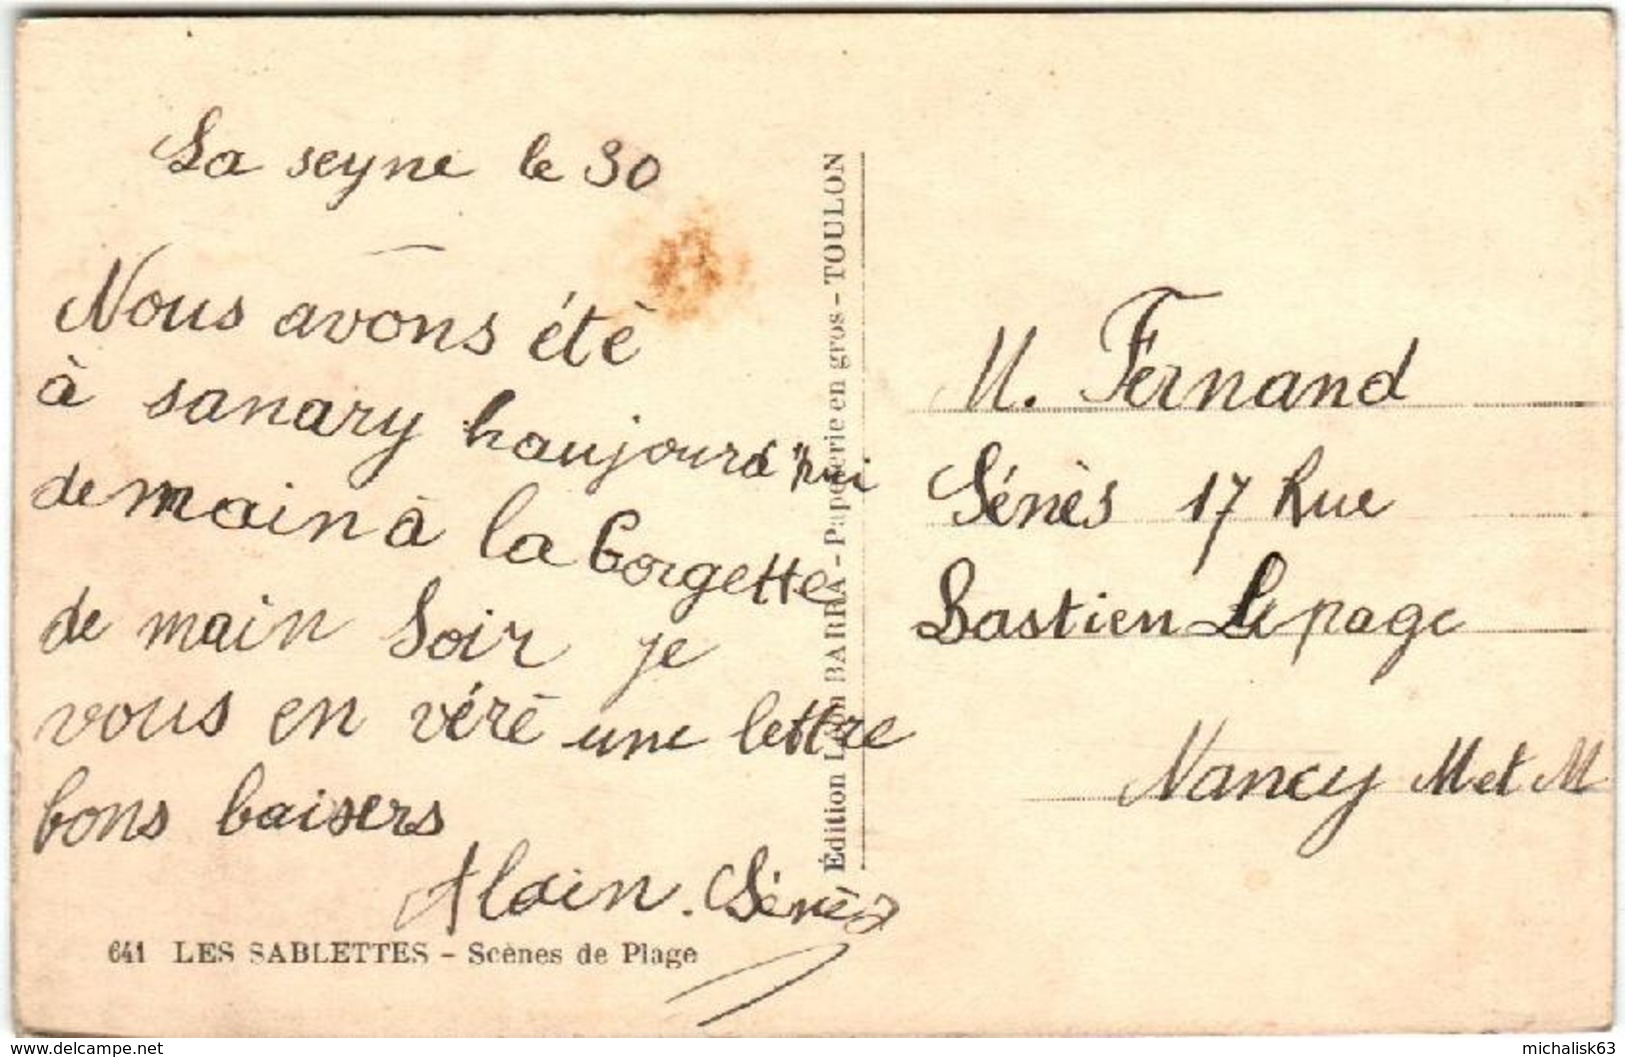 La seyne le 30
Nous avons été
à sanary haujourd'hui
de main à la Gorgette
de main Soir je
vous en véré une lettre
bons baisers
Alain. Sénès
641 LES SABLETTES - Scènes de Plage
Édition Léon BARRA - Papeterie en gros - TOULON
M. Fernand
Sénès 17 Rue
Bastien Lepage
Nancy M et M
www.delcampe.net
michalisk63